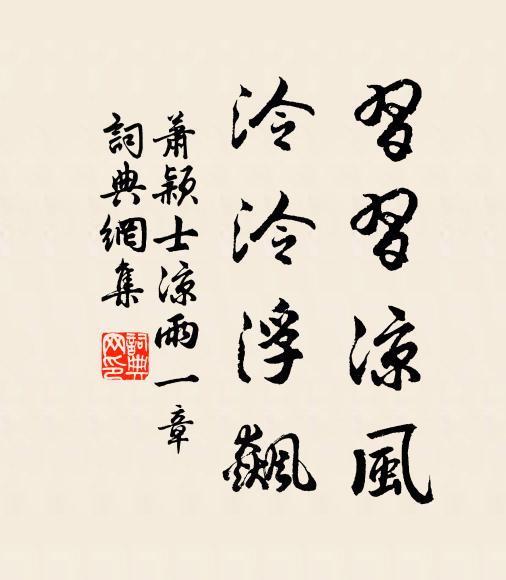 習習涼風
泠泠浮飆
蕭穎士涼雨一章
詞典網集
詞典网印